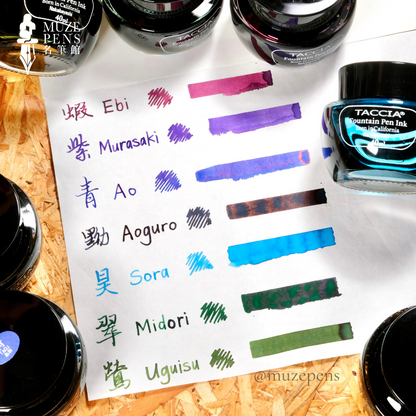 MUZE
PENS
名筆館
40ml
TACCIA
Born in California
TACCIA
Fountain Pen Ink
Born in California
40ml
蝦 Ebi
紫 Murasaki
青 Ao
黝 Aoguro
昊 Sora
翠 Midori
鶯 Uguisu
@muzepens